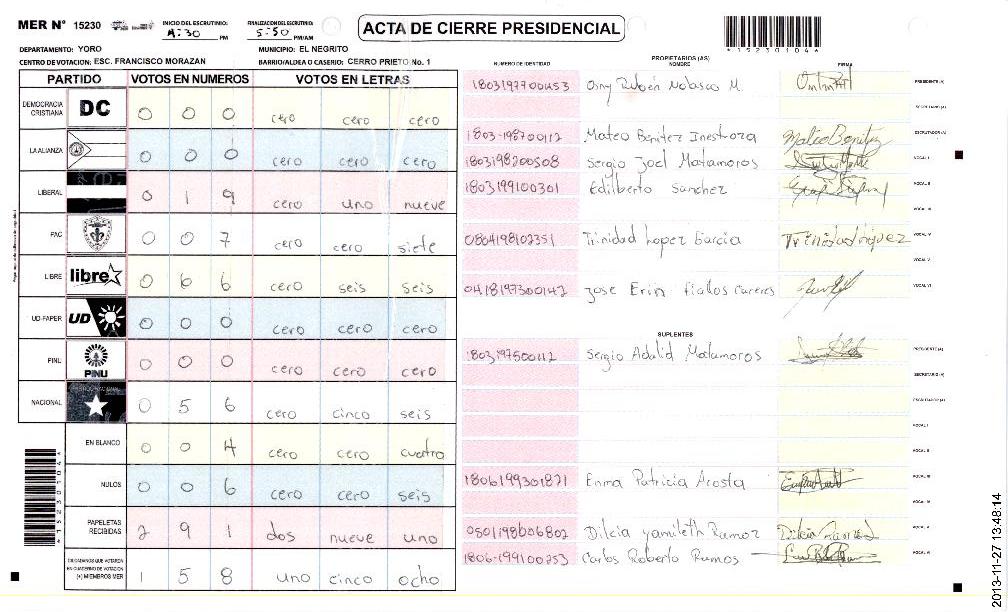 MER N° 15230
INICIO DEL ESCRUTINIO: 4:30 PM
FINALIZACION DEL ESCRUTINIO: 5:50 PM/AM
ACTA DE CIERRE PRESIDENCIAL
*15230104*
DEPARTAMENTO: YORO
MUNICIPIO: EL NEGRITO
CENTRO DE VOTACION: ESC. FRANCISCO MORAZAN
BARRIO/ALDEA O CASERIO: CERRO PRIETO No. 1
PARTIDO VOTOS EN NUMEROS VOTOS EN LETRAS
DEMOCRACIA CRISTIANA DC 0 0 0 cero cero cero
LA ALIANZA 0 0 0 cero cero cero
LIBERAL 0 1 9 cero uno nueve
PAC 0 0 7 cero cero siete
LIBRE libre 0 6 6 cero seis seis
UD-FAPER UD 0 0 0 cero cero cero
PINU PINU 0 0 0 cero cero cero
NACIONAL 0 5 6 cero cinco seis
EN BLANCO 0 0 4 cero cero cuatro
NULOS 0 0 6 cero cero seis
PAPELETAS RECIBIDAS 2 9 1 dos nueve uno
CIUDADANOS QUE VOTARON EN CUADERNO DE VOTACION (+) MIEMBROS MER 1 5 8 uno cinco ocho
PROPIETARIOS (AS)
NUMERO DE IDENTIDAD NOMBRE FIRMA
1803197700453 Osny Rubén Nolasco M. PRESIDENTE (A)
SECRETARIO (A)
1803-198700112 Mateo Benitez Inestroza Mateo Benitez ESCRUTADOR (A)
1803198200508 Sergio Joel Matamoros VOCAL I
1803199100301 Edilberto Sanchez VOCAL II
VOCAL III
0804198102351 Trinidad Lopez Garcia VOCAL IV
VOCAL V
0418197300142 Jose Erin Fiallos VOCAL VI
SUPLENTES
1803197500112 Sergio Adalid Matamoros PRESIDENTE (A)
SECRETARIO (A)
ESCRUTADOR (A)
VOCAL I
VOCAL II
1806199301871 Enma Patricia Acosta VOCAL III
VOCAL IV
0501198006802 Dilcia Yamileth Ramoz VOCAL V
1806-199100253 Carlos Roberto Ramos VOCAL VI
*15230104*
2013-11-27 13:48:14